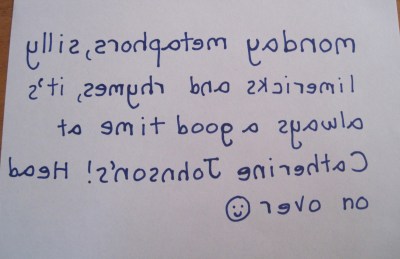 monday metaphors, silly
limericks and rhymes, it's
always a good time at
Catherine Johnson's! Head
on over ☺